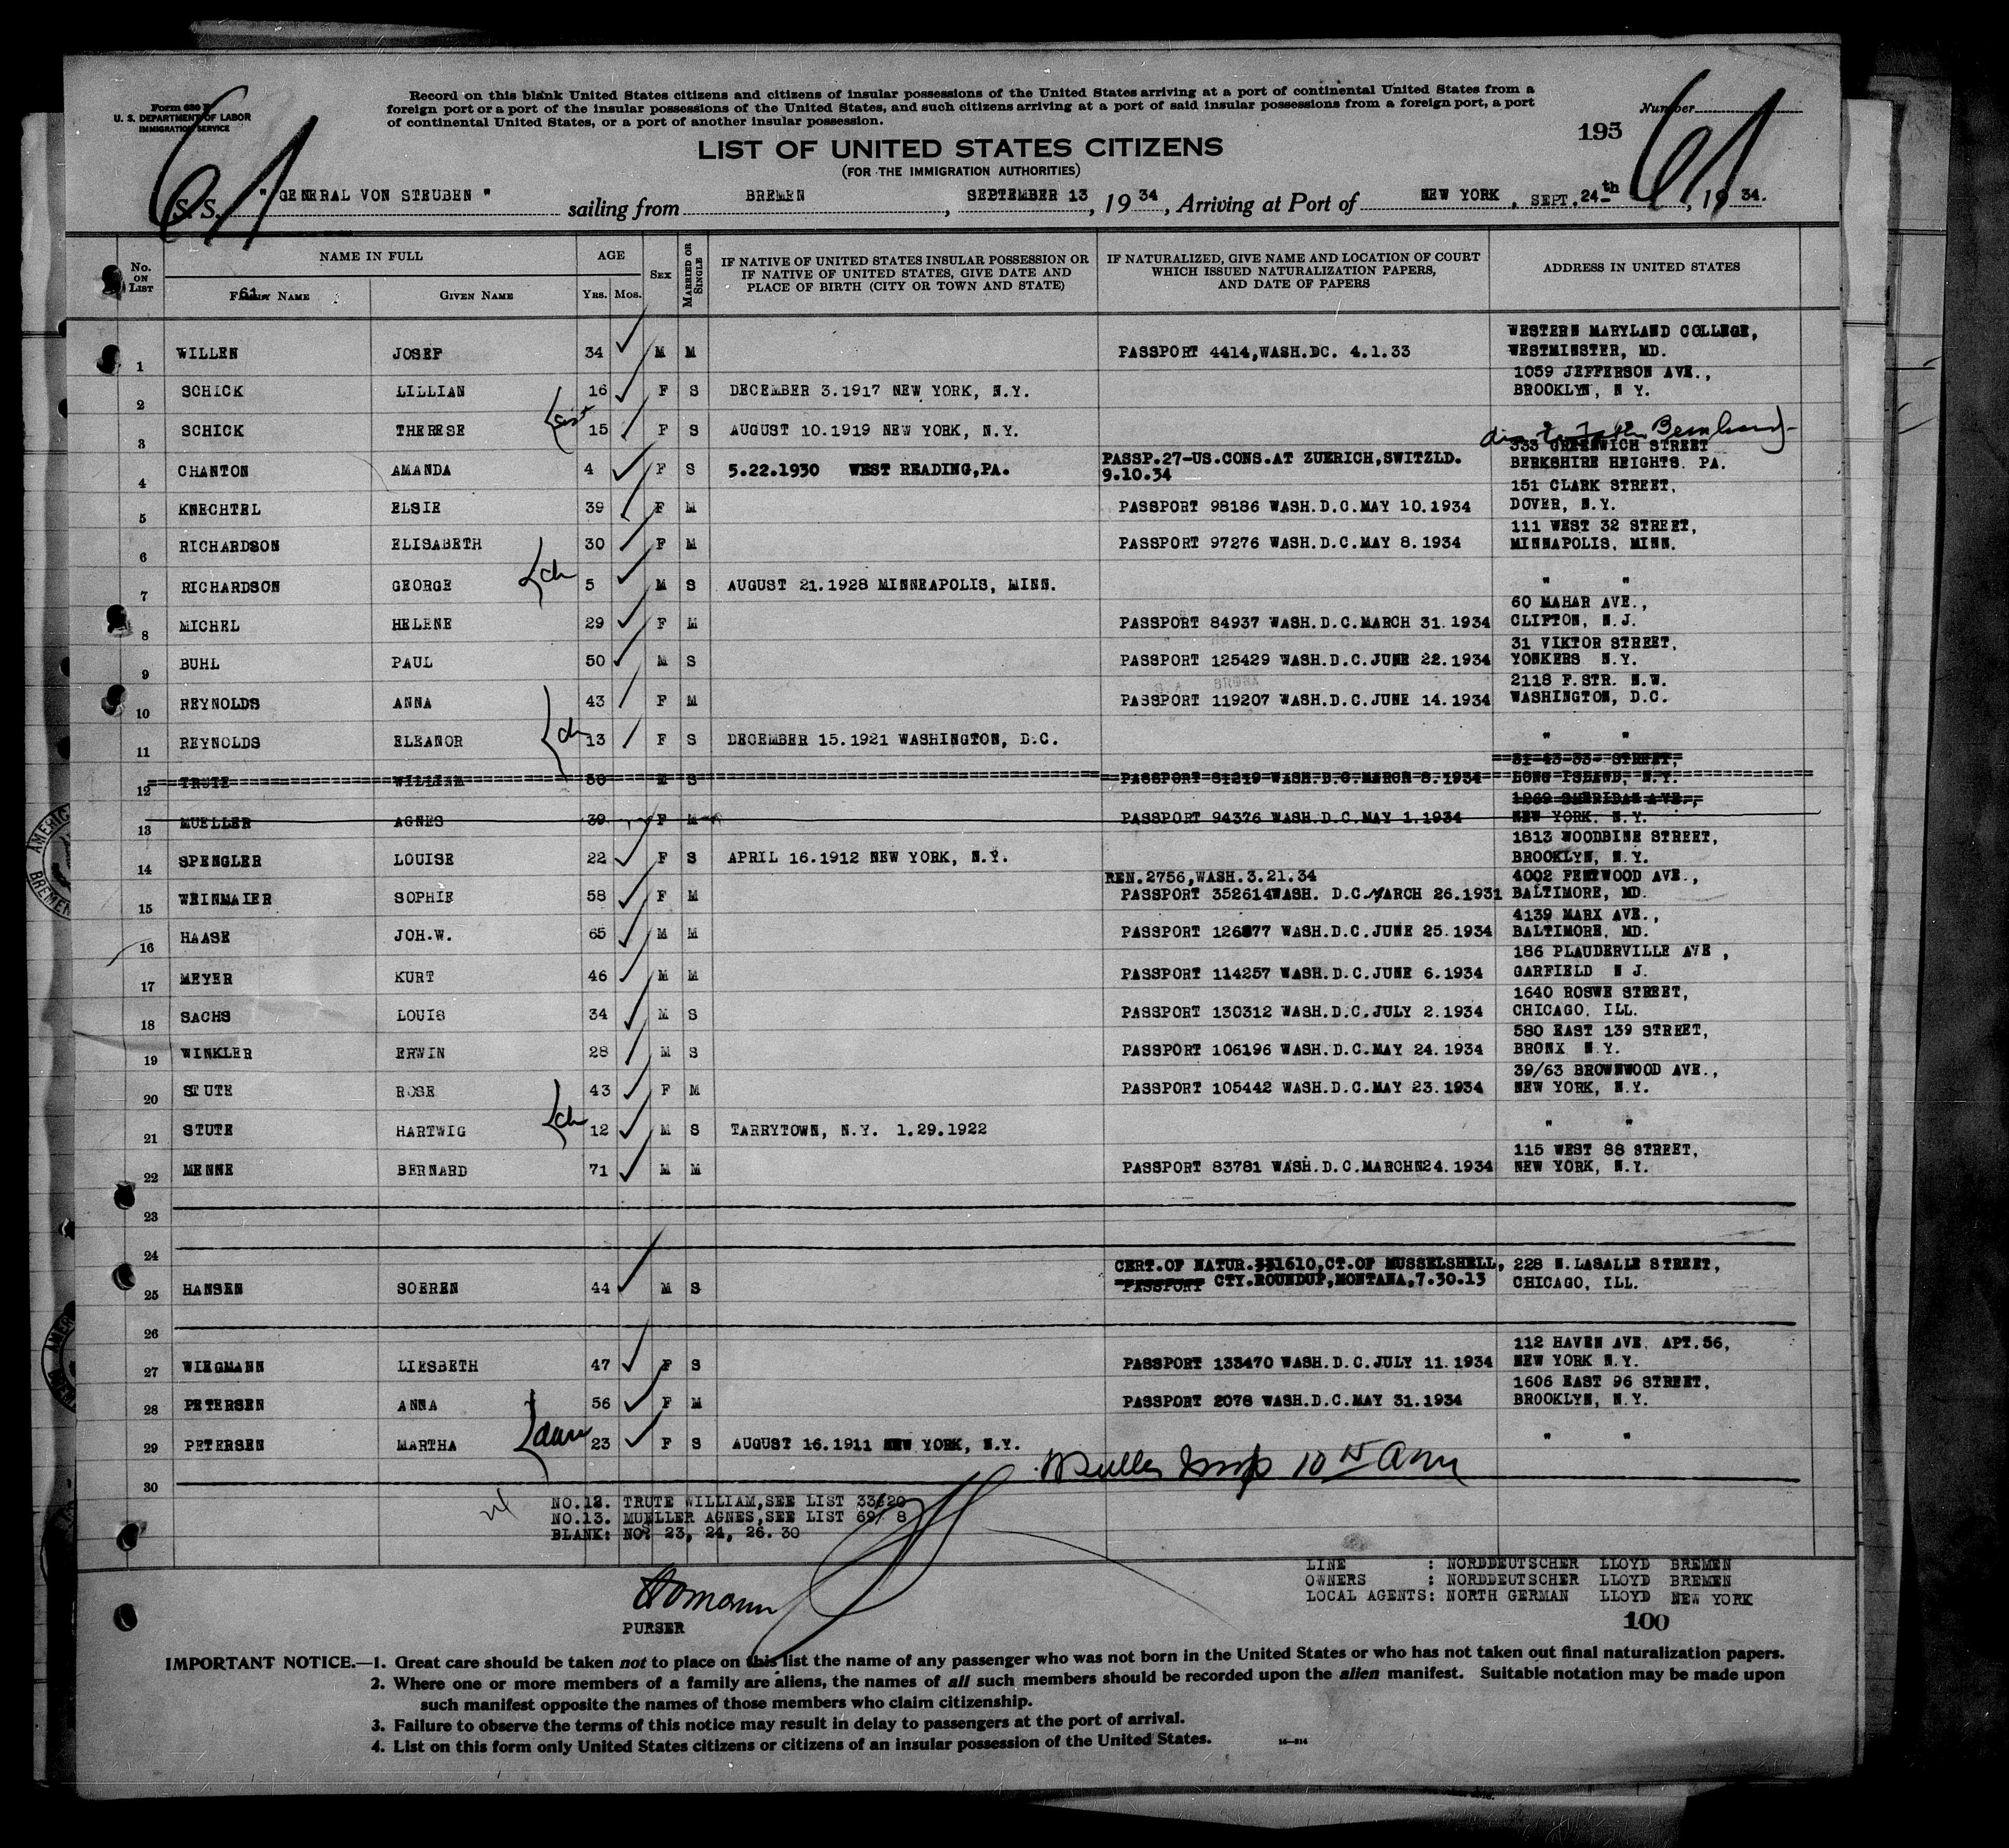 Form 630 B
U. S. DEPARTMENT OF LABOR
IMMIGRATION SERVICE
Record on this blank United States citizens and citizens of insular possessions of the United States arriving at a port of continental United States from a
foreign port or a port of the insular possessions of the United States, and such citizens arriving at a port of said insular possessions from a foreign port, a port
of continental United States, or a port of another insular possession.
Number
195
61
61
LIST OF UNITED STATES CITIZENS
(FOR THE IMMIGRATION AUTHORITIES)
S. S. "GENERAL VON STEUBEN" sailing from BREMEN, SEPTEMBER 13, 19 34, Arriving at Port of NEW YORK, SEPT. 24th, 19 34.
No. ON LIST NAME IN FULL AGE SEX MARRIED OR SINGLE IF NATIVE OF UNITED STATES INSULAR POSSESSION OR IF NATIVE OF UNITED STATES, GIVE DATE AND PLACE OF BIRTH (CITY OR TOWN AND STATE) IF NATURALIZED, GIVE NAME AND LOCATION OF COURT WHICH ISSUED NATURALIZATION PAPERS, AND DATE OF PAPERS ADDRESS IN UNITED STATES
61
FAMILY NAME GIVEN NAME YRS. MOS.
1 WILLEN JOSEF 34 M M PASSPORT 4414,WASH.DC. 4.1.33 WESTERN MARYLAND COLLEGE, WESTMINSTER, MD.
2 SCHICK LILLIAN 16 F S DECEMBER 3.1917 NEW YORK, N.Y. 1059 JEFFERSON AVE., BROOKLYN, N Y.
3 SCHICK THERESE 15 F S AUGUST 10.1919 NEW YORK, N.Y.
4 CHANTON AMANDA 4 F S 5.22.1930 WEST READING,PA. PASSP.27-US.CONS.AT ZUERICH,SWITZLD. 9.10.34 333 GREENWICH STREET BERKSHIRE HEIGHTS. PA.
5 KNECHTEL ELSIE 39 F M PASSPORT 98186 WASH.D.C.MAY 10.1934 151 CLARK STREET, DOVER, N.Y.
6 RICHARDSON ELISABETH 30 F M PASSPORT 97276 WASH.D.C.MAY 8.1934 111 WEST 32 STREET, MINNAPOLIS, MINN.
7 RICHARDSON GEORGE ch 5 M S AUGUST 21.1928 MINNEAPOLIS, MINN. " "
8 MICHEL HELENE 29 F M PASSPORT 84937 WASH.D.C.MARCH 31.1934 60 MAHAR AVE., CLIFTON, N.J.
9 BUHL PAUL 50 M S PASSPORT 125429 WASH.D.C.JUNE 22.1934 31 VIKTOR STREET, YONKERS N.Y.
10 REYNOLDS ANNA 43 F M PASSPORT 119207 WASH.D.C.JUNE 14.1934 2118 F.STR. N.W. WASHINGTON, D.C.
11 REYNOLDS ELEANOR ch 13 F S DECEMBER 15.1921 WASHINGTON, D.C. " "
12 TRUTE WILLIAM M S PASSPORT 81219 WASH.D.C.MARCH 8.1934 STREET, LONG ISLAND, N.Y.
13 MUELLER AGNES 39 F M PASSPORT 94376 WASH.D.C.MAY 1.1934 1269 SHERIDAN AVE., NEW YORK, N.Y.
14 SPENGLER LOUISE 22 F S APRIL 16.1912 NEW YORK, N.Y. 1813 WOODBINE STREET, BROOKLYN, N.Y.
15 WEINMAIER SOPHIE 58 F M REN.2756,WASH.3.21.34 PASSPORT 352614WASH. D.C.MARCH 26.1931 4002 FERTWOOD AVE., BALTIMORE, MD.
16 HAASE JOH.W. 65 M M PASSPORT 126877 WASH.D.C.JUNE 25.1934 4139 MARX AVE., BALTIMORE, MD.
17 MEYER KURT 46 M M PASSPORT 114257 WASH.D.C.JUNE 6.1934 186 PLAUDERVILLE AVE , GARFIELD N J.
18 SACHS LOUIS 34 M S PASSPORT 130312 WASH.D.C.JULY 2.1934 1640 ROSWE STREET, CHICAGO, ILL.
19 WINKLER ERWIN 28 M S PASSPORT 106196 WASH.D.C.MAY 24.1934 580 EAST 139 STREET, BRONX N.Y.
20 STUTE ROSE 43 F M PASSPORT 105442 WASH.D.C.MAY 23.1934 39/63 BROWNWOOD AVE., NEW YORK, N.Y.
21 STUTE HARTWIG ch 12 M S TARRYTOWN, N.Y. 1.29.1922 " "
22 MENNE BERNARD 71 M M PASSPORT 83781 WASH.D.C.MARCHN24.1934 115 WEST 88 STREET, NEW YORK, N.Y.
23
24
25 HANSEN SOEREN 44 M S CERT.OF NATUR.331610,CT.OF MUSSELSHELL, PASSPORT CTY.ROUNDUP,MONTANA,7.30.13 228 N.LASALLE STREET, CHICAGO, ILL.
26
27 WIEGMANN LIESBETH 47 F S PASSPORT 133470 WASH.D.C.JULY 11.1934 112 HAVEN AVE. APT.56, NEW YORK N.Y.
28 PETERSEN ANNA 56 F M PASSPORT 2078 WASH.D.C.MAY 31.1934 1606 EAST 96 STREET, BROOKLYN, N.Y.
29 PETERSEN MARTHA 23 F S AUGUST 16.1911 NEW YORK, N.Y. " "
30
NO.12. TRUTE WILLIAM,SEE LIST 33/20
NO.13. MUELLER AGNES,SEE LIST 69/ 8
BLANK: NO: 23, 24, 26. 30
LINE : NORDDEUTSCHER LLOYD BREMEN
OWNERS : NORDDEUTSCHER LLOYD BREMEN
LOCAL AGENTS: NORTH GERMAN LLOYD NEW YORK
PURSER
100
IMPORTANT NOTICE.—1. Great care should be taken not to place on this list the name of any passenger who was not born in the United States or who has not taken out final naturalization papers.
2. Where one or more members of a family are aliens, the names of all such members should be recorded upon the alien manifest. Suitable notation may be made upon
such manifest opposite the names of those members who claim citizenship.
3. Failure to observe the terms of this notice may result in delay to passengers at the port of arrival.
4. List on this form only United States citizens or citizens of an insular possession of the United States.